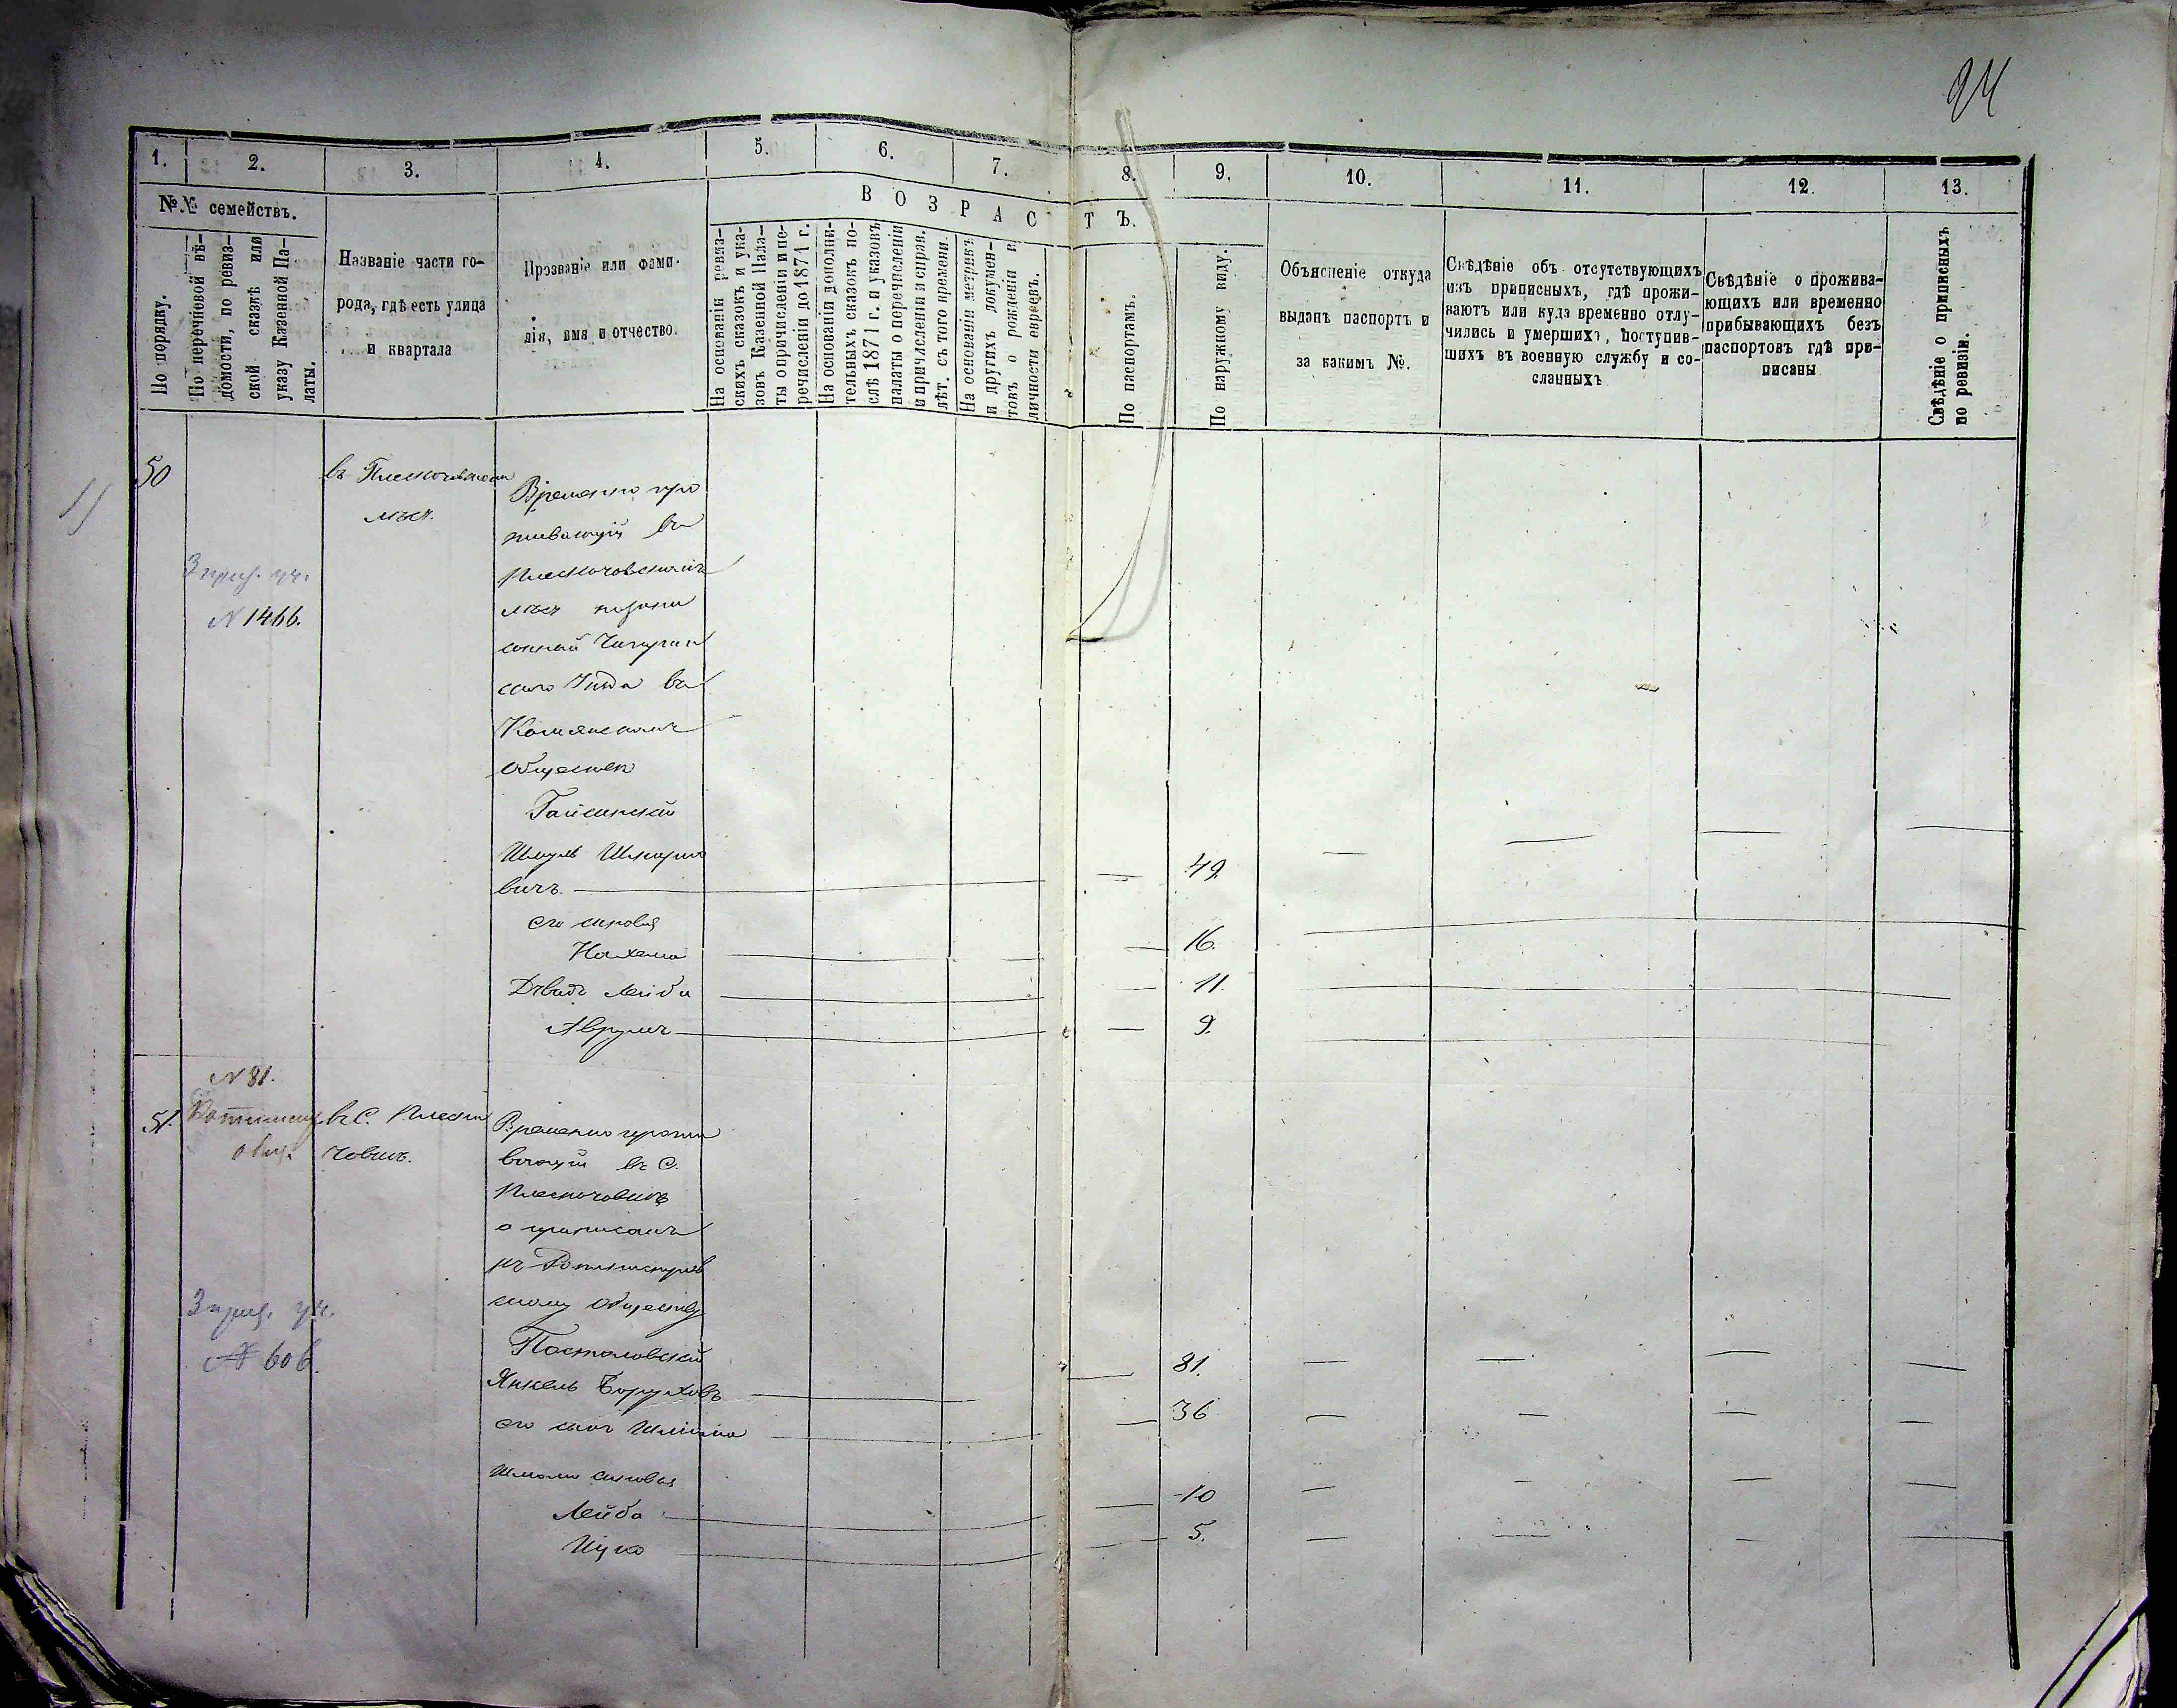 94
1. 2. 3. 4. 5. 6. 7. 8. 9. 10. 11. 12. 13.
№№ семействъ.
По порядку.
По перечневой вѣ-
домости, по ревиз-
ской сказкѣ или
указу Казенной Па-
латы.
Названіе части го-
рода, гдѣ есть улица
и квартала
Прозваніе или фами-
лія, имя и отчество.
ВОЗРАСТЪ.
На основаніи ревиз-
скихъ сказокъ и ука-
зовъ Казенной Пала-
ты о причисленіи и пе-
речисленіи до 1871 г.
На основаніи дополни-
тельныхъ сказокъ по-
слѣ 1871 г. и указовъ
палаты о перечисленіи
и причисленіи и справ.
лѣт. съ того времени.
На основаніи метрикъ
и другихъ докумен-
товъ о рожденіи и
личности евреевъ.
По паспортамъ.
По наружному виду.
Объясненіе откуда
выданъ паспортъ и
за какимъ №.
Свѣдѣніе объ отсутствующихъ
изъ приписныхъ, гдѣ прожи-
ваютъ или куда временно отлу-
чились и умершихъ, поступив-
шихъ въ военную службу и со-
сланныхъ
Свѣдѣніе о прожива-
ющихъ или временно
прибывающихъ безъ
паспортовъ гдѣ при-
писаны
Свѣдѣніе о приписныхъ
по ревизіи.
50
въ
мѣст.
Временно про
живающій въ
мѣст
3 приз. уч.
N 1466.
сского Уѣзда въ
Обществѣ
Гайсинскій
Шмуль
вичъ. — — 49. — — — —
его сыновья
Нахема — — 16.
Лейба — — 11.
Аврумъ — — 9.
N 81.
51.
общ.
въ С. Плеско
човкѣ.
Временно прожи
вающій въ С.
Плескочовкѣ
а приписанъ
къ
скому Обществу
3 приз. уч.
№ 606.
Постоловскій
Янкель Боруховъ — — 81. — — — —
его сынъ — — 36 — — — —
сыновья
Лейба — — 10 — — — —
Ицко — — 5. — — — —